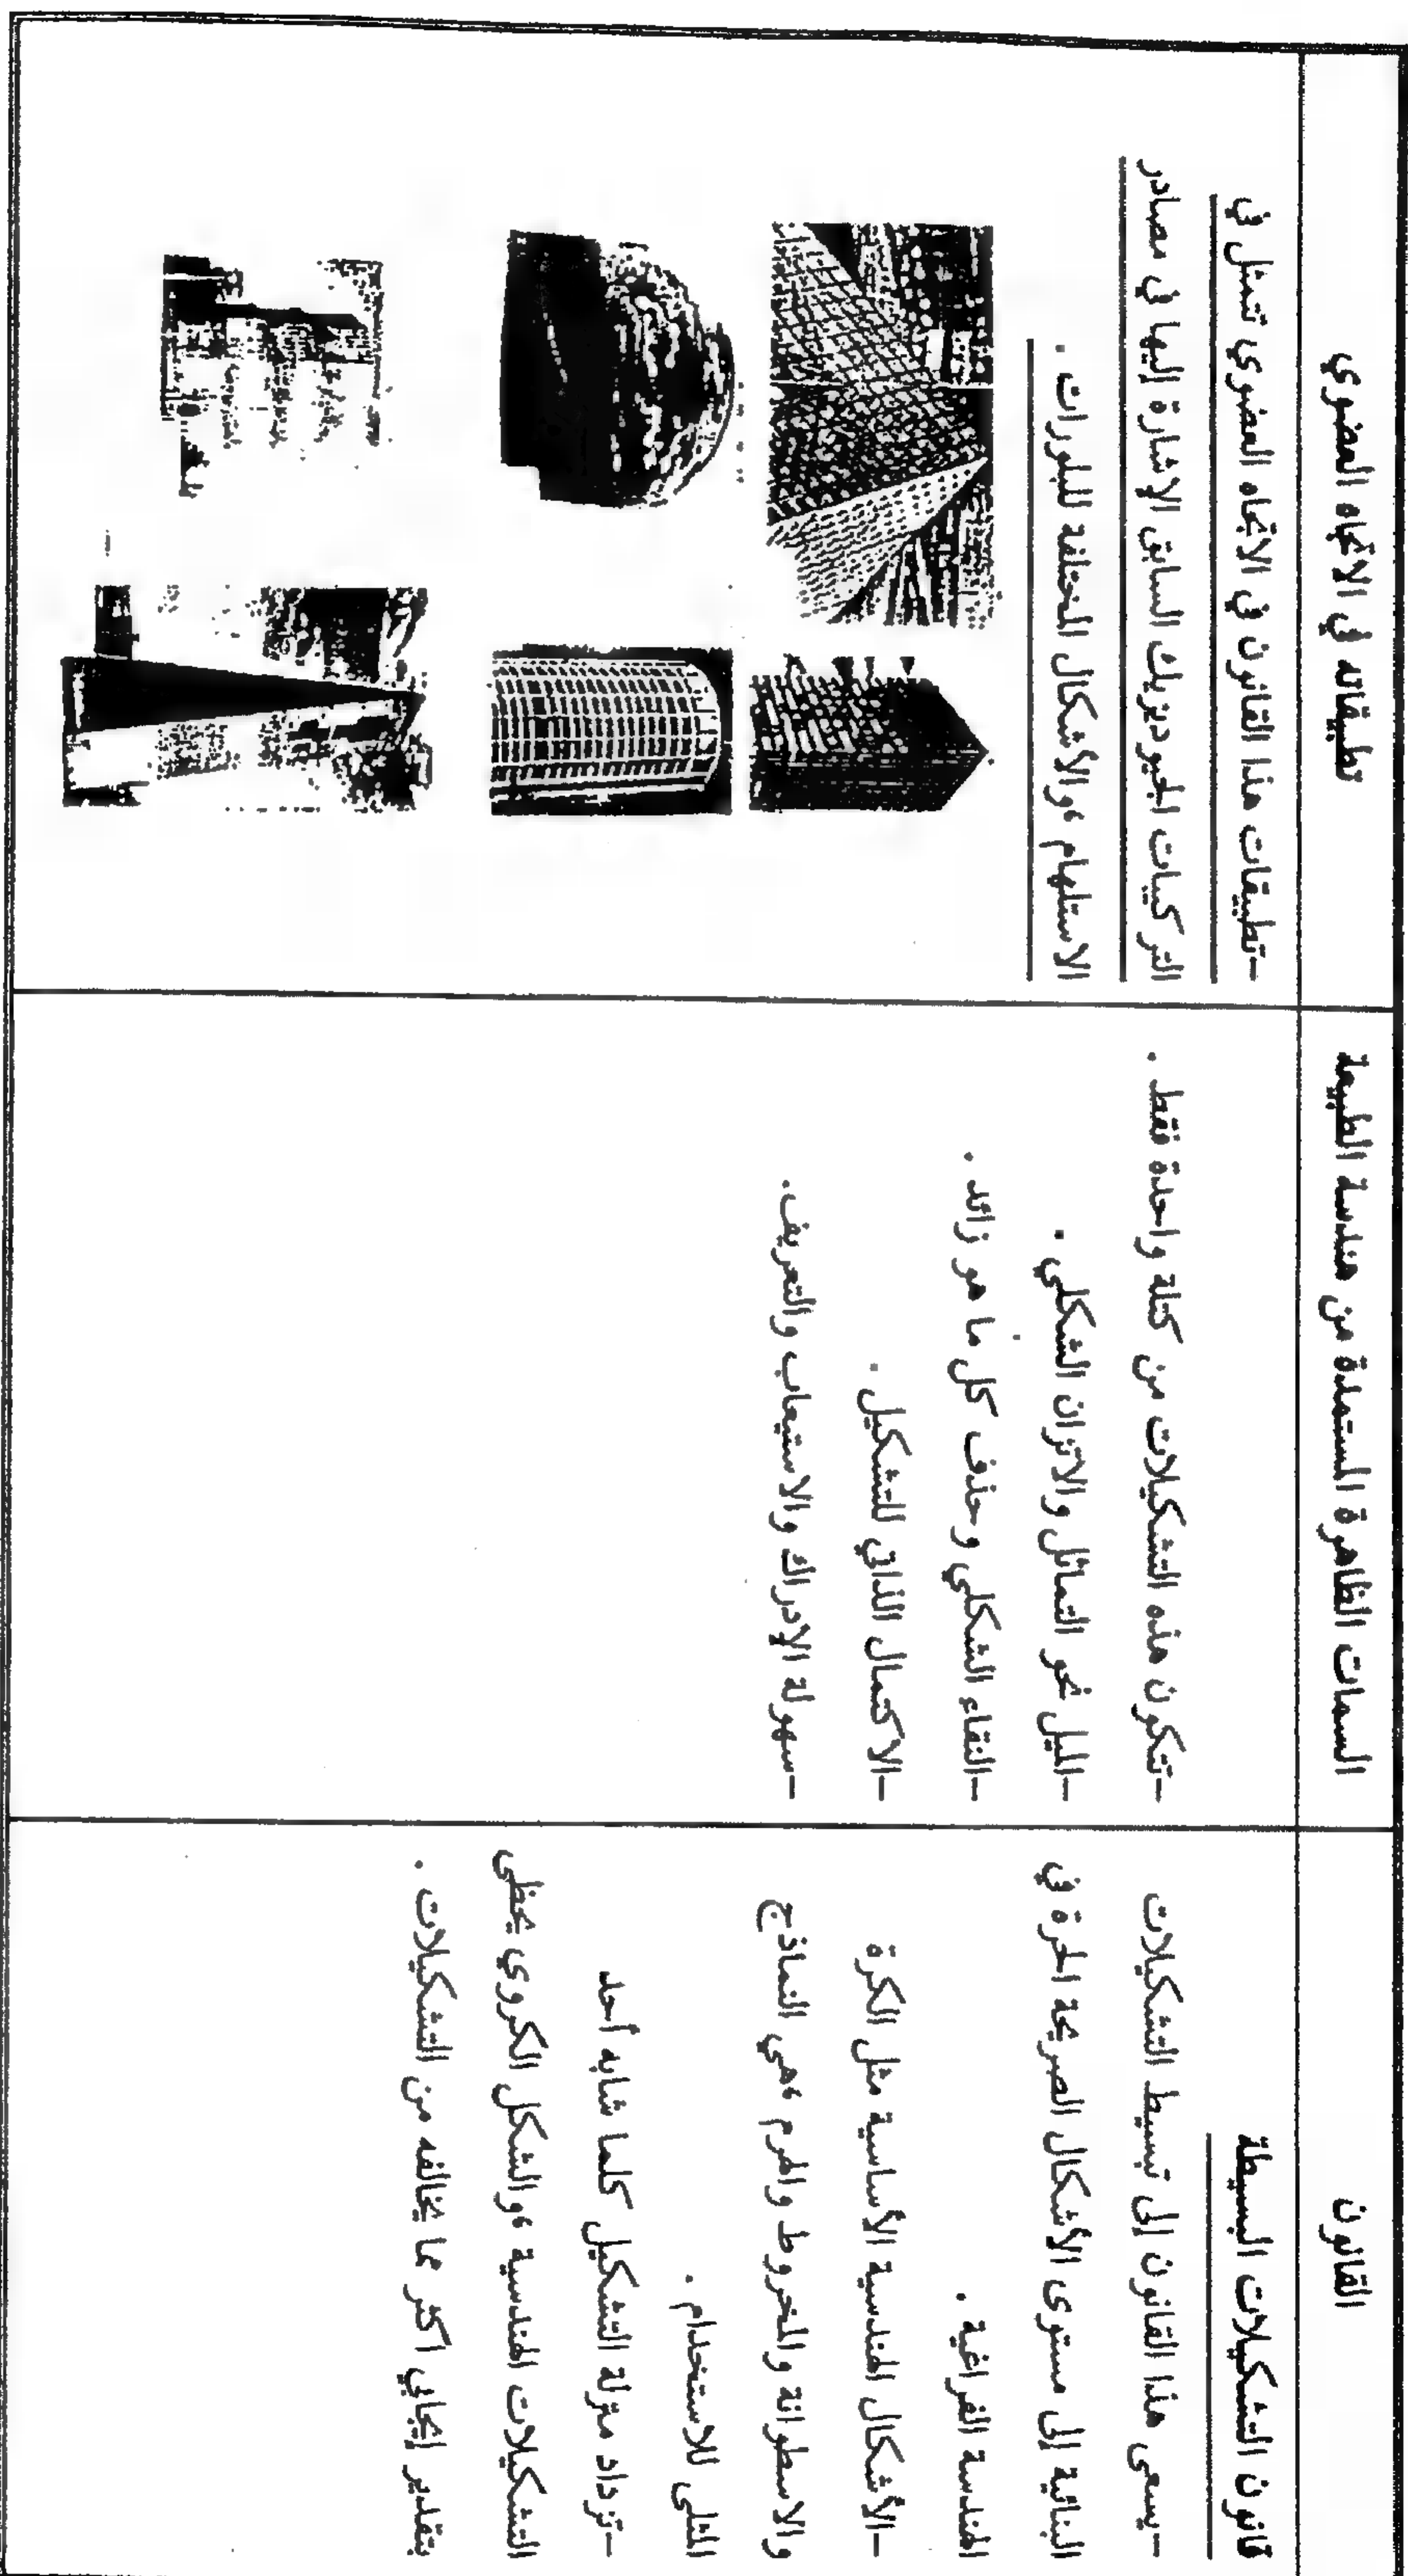 القانون
السمات الظاهرة المستمدة من هندسة الطبيعة
تطبيقاته في الاتجاه العضوي
قانون التشكيلات البسيطة
-يسعى هذا القانون إلى تبسيط التشكيلات
البنائية إلى مستوى الأشكال الصريحة الحرة في
الهندسة الفراغية .
-الأشكال الهندسية الأساسية مثل الكرة
والاسطوانة والمخروط والهرم ،هي النماذج
المثلى للاستخدام .
-تزداد منزلة التشكيل كلما شابه أحد
التشكيلات الهندسية ،والشكل الكروي يحظى
بتقدير إيجابي اكثر مما يخالفه من التشكيلات .
-تتكون هذه التشكيلات من كتلة واحدة فقط .
-الميل نحو التماثل والاتزان الشكلي .
-النقاء الشكلي وحذف كل ما هو زائد .
-الاكتمال الذاتي للتشكيل .
-سهولة الإدراك والاستيعاب والتعريف.
-تطبيقات هذا القانون في الاتجاه العضوي تمثل في
التركيبات الجيوديزيك السابق الإشارة إليها في مصادر
الاستلهام ،والأشكال المختلفة للبلورات .